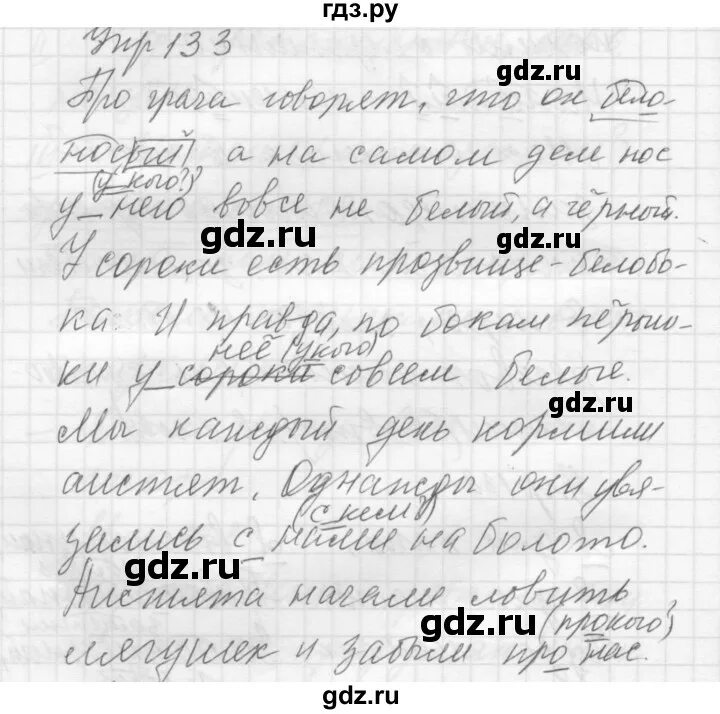 гдз.ру
Упр 133
Про грача говорят, что он бело-
носый, а на самом деле нос
(у кого?)
у него вовсе не белый, а чёрный.
У сороки есть прозвище - белобо-
ка. И правда, по бокам пёрыш-
неё (у кого)
ки у сороки совсем белые.
Мы каждый день кормили
аистят. Однажды они увя-
(с кем?)
зались с нами на болото.
Аистята начали ловить
(про кого?)
лягушек и забыли про нас.
gdz.ru
gdz.ru
gdz.ru
gdz.ru
gdz.ru
gdz.ru
gdz.ru